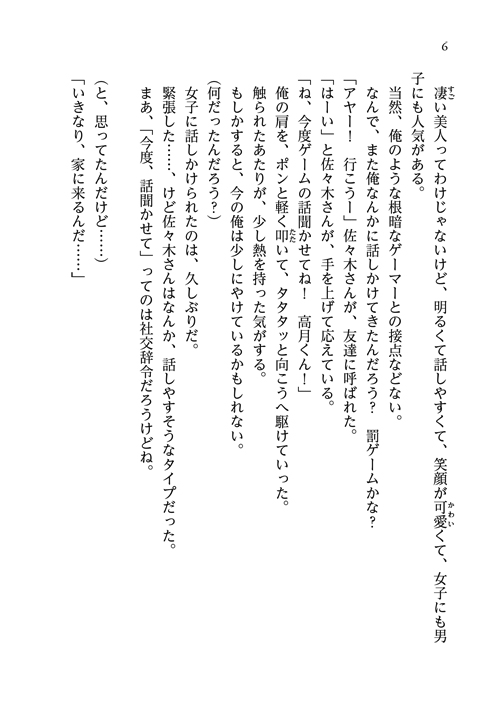 6
凄い美人ってわけじゃないけど、明るくて話しやすくて、笑顔が可愛くて、女子にも男
子にも人気がある。
当然、俺のような根暗なゲーマーとの接点などない。
なんで、また俺なんかに話しかけてきたんだろう？　罰ゲームかな？
「アヤー！　行こうー」佐々木さんが、友達に呼ばれた。
「はーい」と佐々木さんが、手を上げて応えている。
「ね、今度ゲームの話聞かせてね！　高月くん！」
俺の肩を、ポンと軽く叩いて、タタタッと向こうへ駆けていった。
触られたあたりが、少し熱を持った気がする。
もしかすると、今の俺は少しにやけているかもしれない。
（何だったんだろう？）
女子に話しかけられたのは、久しぶりだ。
緊張した……、けど佐々木さんはなんか、話しやすそうなタイプだった。
まあ、「今度、話聞かせて」ってのは社交辞令だろうけどね。
（と、思ってたんだけど……）
「いきなり、家に来るんだ……」